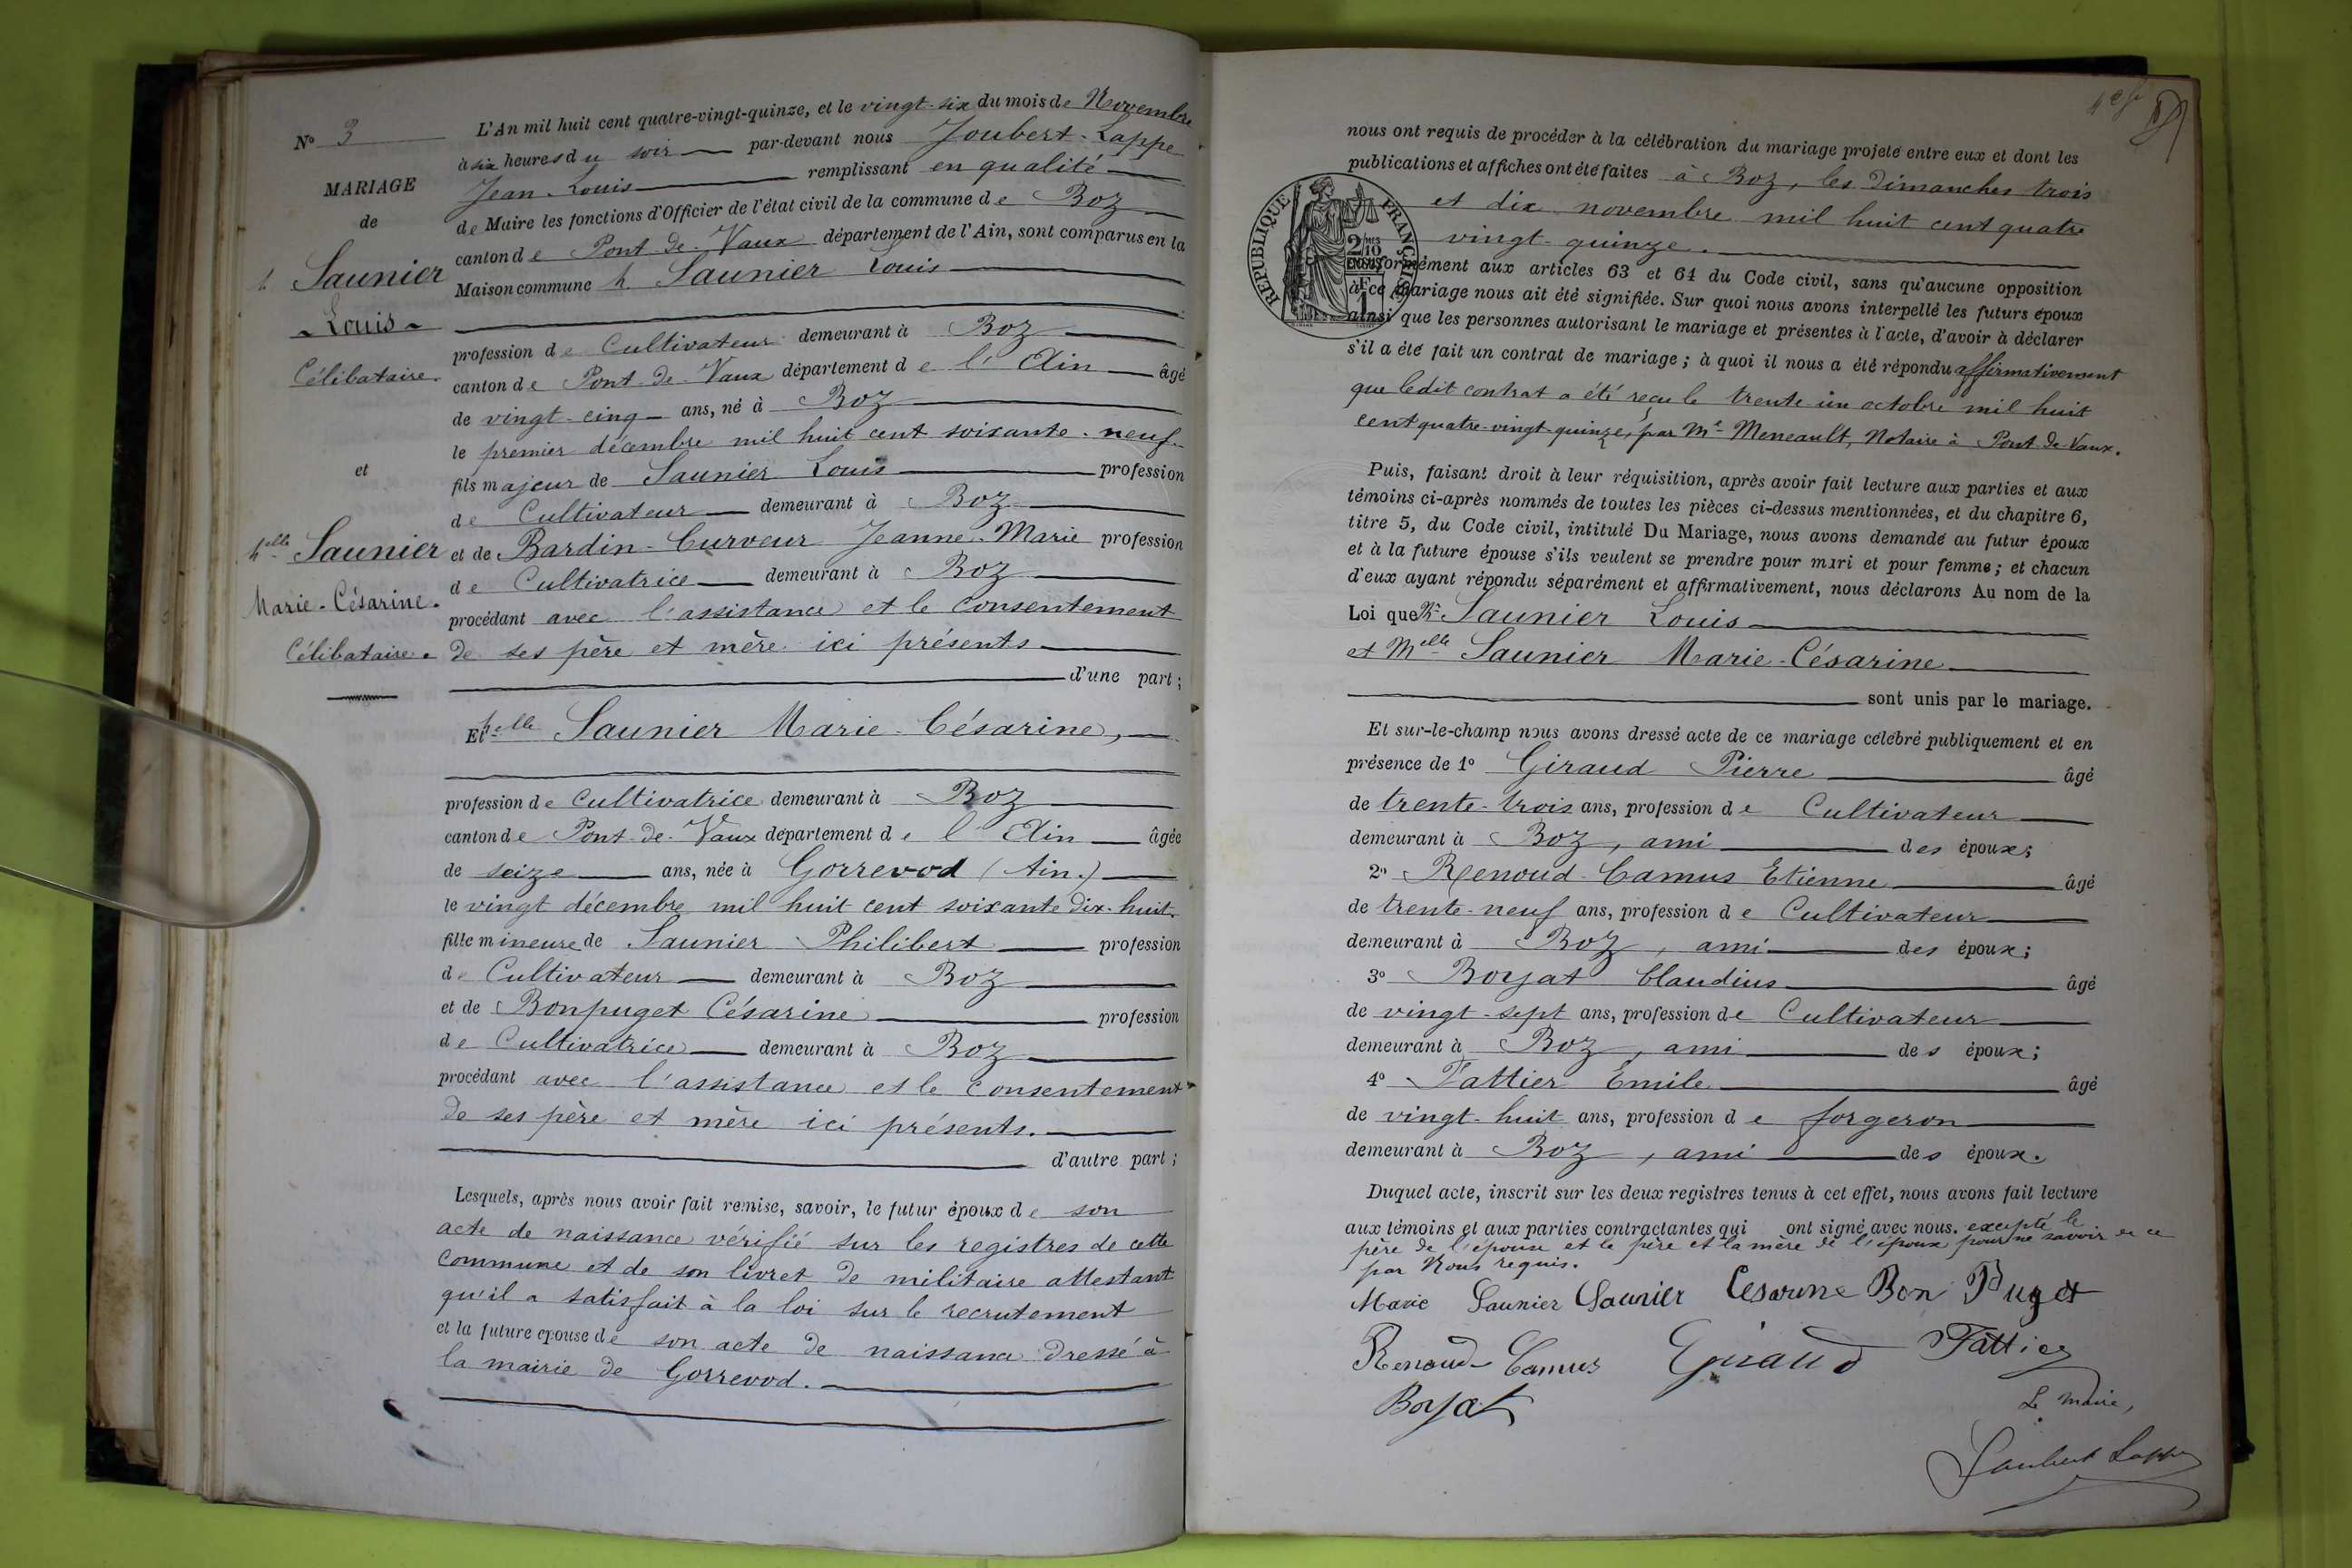 N° 3
MARIAGE
de
h. Saunier
Louis
Célibataire.
et
helle Saunier
Marie-Césarine.
Célibataire.
L'An mil huit cent quatre-vingt-quinze, et le vingt-six du mois de Novembre
à six heures du soir par-devant nous Joubert-Lappe
Jean-Louis remplissant en qualité
de Maire les fonctions d'Officier de l'état civil de la commune de Boz
canton de Pont-de-Vaux département de l'Ain, sont comparus en la
Maison commune h. Saunier Louis
profession de Cultivateur demeurant à Boz
canton de Pont-de-Vaux département de l'Ain âgé
de vingt-cinq ans, né à Boz
le premier décembre mil huit cent soixante-neuf
fils majeur de Saunier Louis profession
de Cultivateur demeurant à Boz
et de Bardin-Curveur Jeanne-Marie profession
de Cultivatrice demeurant à Boz
procédant avec l'assistance et le consentement
de ses père et mère ici présents
d'une part;
Et helle Saunier Marie-Césarine,
profession de Cultivatrice demeurant à Boz
canton de Pont-de-Vaux département de l'Ain âgée
de seize ans, née à Gorrevod (Ain.)
le vingt décembre mil huit cent soixante dix-huit.
fille mineure de Saunier Philibert profession
de Cultivateur demeurant à Boz
et de Bonpuget Césarine profession
de Cultivatrice demeurant à Boz
procédant avec l'assistance et le consentement
de ses père et mère ici présents.
d'autre part;
Lesquels, après nous avoir fait remise, savoir, le futur époux de son
acte de naissance vérifié sur les registres de cette
commune et de son livret de militaire attestant
qu'il a satisfait à la loi sur le recrutement
et la future épouse de son acte de naissance dressé à
la mairie de Gorrevod.
nous ont requis de procéder à la célébration du mariage projeté entre eux et dont les
publications et affiches ont été faites à Boz, les dimanches trois
et dix novembre mil huit cent quatre
vingt-quinze.
RÉPUBLIQUE FRANÇAISE
2/10 EN SUS
conformément aux articles 63 et 64 du Code civil, sans qu'aucune opposition
à ce mariage nous ait été signifiée. Sur quoi nous avons interpellé les futurs époux
ainsi que les personnes autorisant le mariage et présentes à l'acte, d'avoir à déclarer
s'il a été fait un contrat de mariage; à quoi il nous a été répondu affirmativement
que ledit contrat a été reçu le trente-un octobre mil huit
cent quatre-vingt-quinze, par Me Meneault, Notaire à Pont-de-Vaux.
Puis, faisant droit à leur réquisition, après avoir fait lecture aux parties et aux
témoins ci-après nommés de toutes les pièces ci-dessus mentionnées, et du chapitre 6,
titre 5, du Code civil, intitulé Du Mariage, nous avons demandé au futur époux
et à la future épouse s'ils veulent se prendre pour mari et pour femme; et chacun
d'eux ayant répondu séparément et affirmativement, nous déclarons Au nom de la
Loi que Mr Saunier Louis
et Melle Saunier Marie-Césarine
sont unis par le mariage.
Et sur-le-champ nous avons dressé acte de ce mariage célébré publiquement et en
présence de 1° Giraud Pierre âgé
de trente-trois ans, profession de Cultivateur
demeurant à Boz, ami des époux;
2° Renoud-Camus Etienne âgé
de trente-neuf ans, profession de Cultivateur
demeurant à Boz, ami des époux;
3° Boyat Claudius âgé
de vingt-sept ans, profession de Cultivateur
demeurant à Boz, ami des époux;
4° Fattier Emile âgé
de vingt-huit ans, profession de forgeron
demeurant à Boz, ami des époux.
Duquel acte, inscrit sur les deux registres tenus à cet effet, nous avons fait lecture
aux témoins et aux parties contractantes qui ont signé avec nous. excepté le
père de l'épouse et le père et la mère de l'époux pour ne savoir de ce
par Nous requis.
Marie Saunier Saunier Cesarine Bon Puget
Renoud-Camus Giraud Fattier
Boyat
Le Maire,
Joubert Lappe